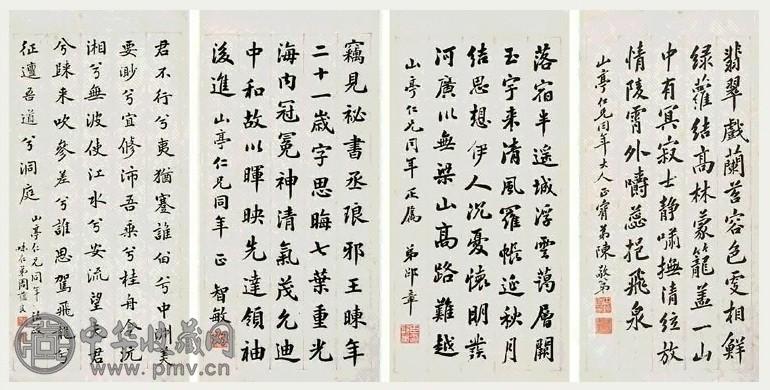 翡翠戲蘭苕容色更相鮮
緑蘿結高林蒙籠蓋一山
中有冥寂士静嘯撫清絃放
情陵霄外嚼蕊挹飛泉
山亭仁兄同年大人正 弟陳敬第
落宿半遥城浮雲藹層闕
玉宇来清風羅帳延秋月
結思想伊人沉憂懷明發
河廣川無梁山高路難越
山亭仁兄同年正屬 弟邵章
竊見祕書丞琅邪王暕年
二十一歲字思晦七葉重光
海内冠冕神清氣茂允迪
中和故以暉映先達領袖
後進 山亭仁兄同年 正 智敏
君不行兮夷猶蹇誰留兮中洲美
要眇兮宜修沛吾乘兮桂舟令沅
湘兮無波使江水兮安流望夫君
兮來吹參差兮誰思駕飛龍兮
征邅吾道兮洞庭
山亭仁兄同年
中华收藏网
www.pmv.cn